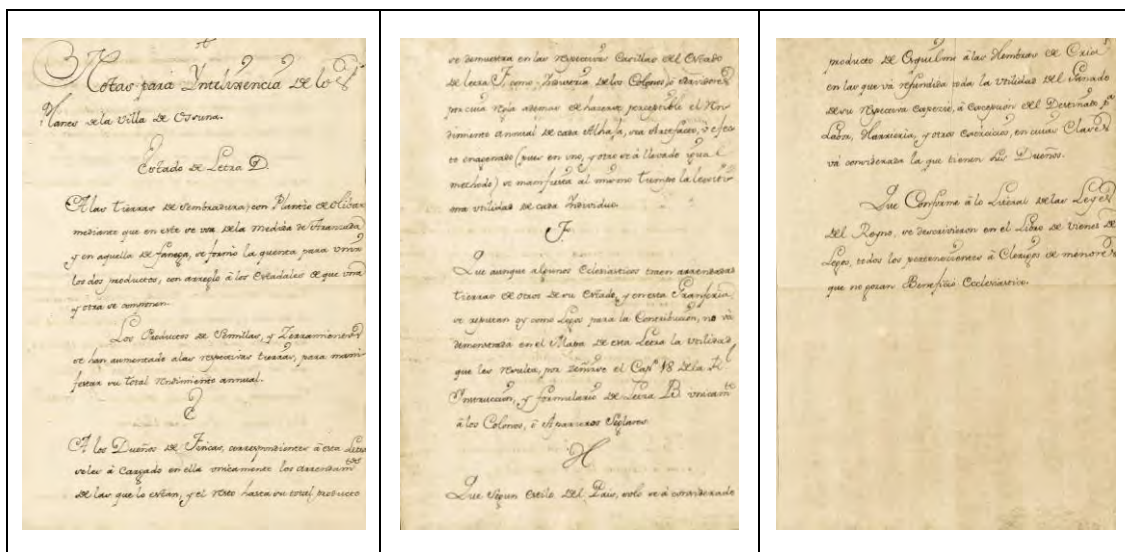 Notas para Yntelixencia de los
Planes de la Villa de Osuna.
Estado de Letra D.
A las tierras de Sembradura con Plantío de olibar
mediante que en este se usa de la medida de Aranzada
y en aquella de fanega, se formó la quenta para unir
los dos productos, con arreglo â los Estadales de que una
y otra se componen.
Los Productos de Semillas, y
se han aumentado alas respectivas tierras, para mani
festar su total rendimiento annual.
E
A los Dueños de Fincas, correspondientes â esta Letra
soles â Cargado en ella unicamente los arrendam.tos
de las que lo están, y el resto hasta su total producto
se demuestra en las respectivas Casillas del Estado
de letra F. como Yndustria de los Colonos, ô
por cuia regla ademas de hacerse perceptible el Ren
dimiento annual de cada Alhaja, sea Artefacto, ô efec
to enagenado (pues en uno, y otro se â llevado igual
methodo) se manifiesta al mismo tiempo la
ma utilidad de cada Yndividuo.
F.
Que aunque algunos Eclesiasticos traen arrendadas
tierras de otros de su Estado, y en esta Granjeria
se reputan oy como Legos para la Contribución, no vâ
demonstrada en el Mapa de esta Letra la utilidad
que les resulta, por ceñirse el Cap.º 18 de la R.l
Ynstrucción, y formulario de Letra B. unicam.te
â los Colonos, ô Aparzeros Seglares.
H
Que segun estilo del Pais, solo se â considerado
producto de Esquilmo â las Hembras de Cria
en las que vâ refundida toda la utilidad del Ganado
de su respectiva especie, â excepción del Destinado p.a
Labor, Harrieria, y otros exercicios, en cuias Claves
vâ considerada la que tienen sus Dueños.
Que Conforme â lo Literal de las Leyes
del Reyno, se describieron en el Libro de vienes de
Legos, todos los pertenecientes â Clerigos de menores
que no gozan Beneficio Ecclesiastico.